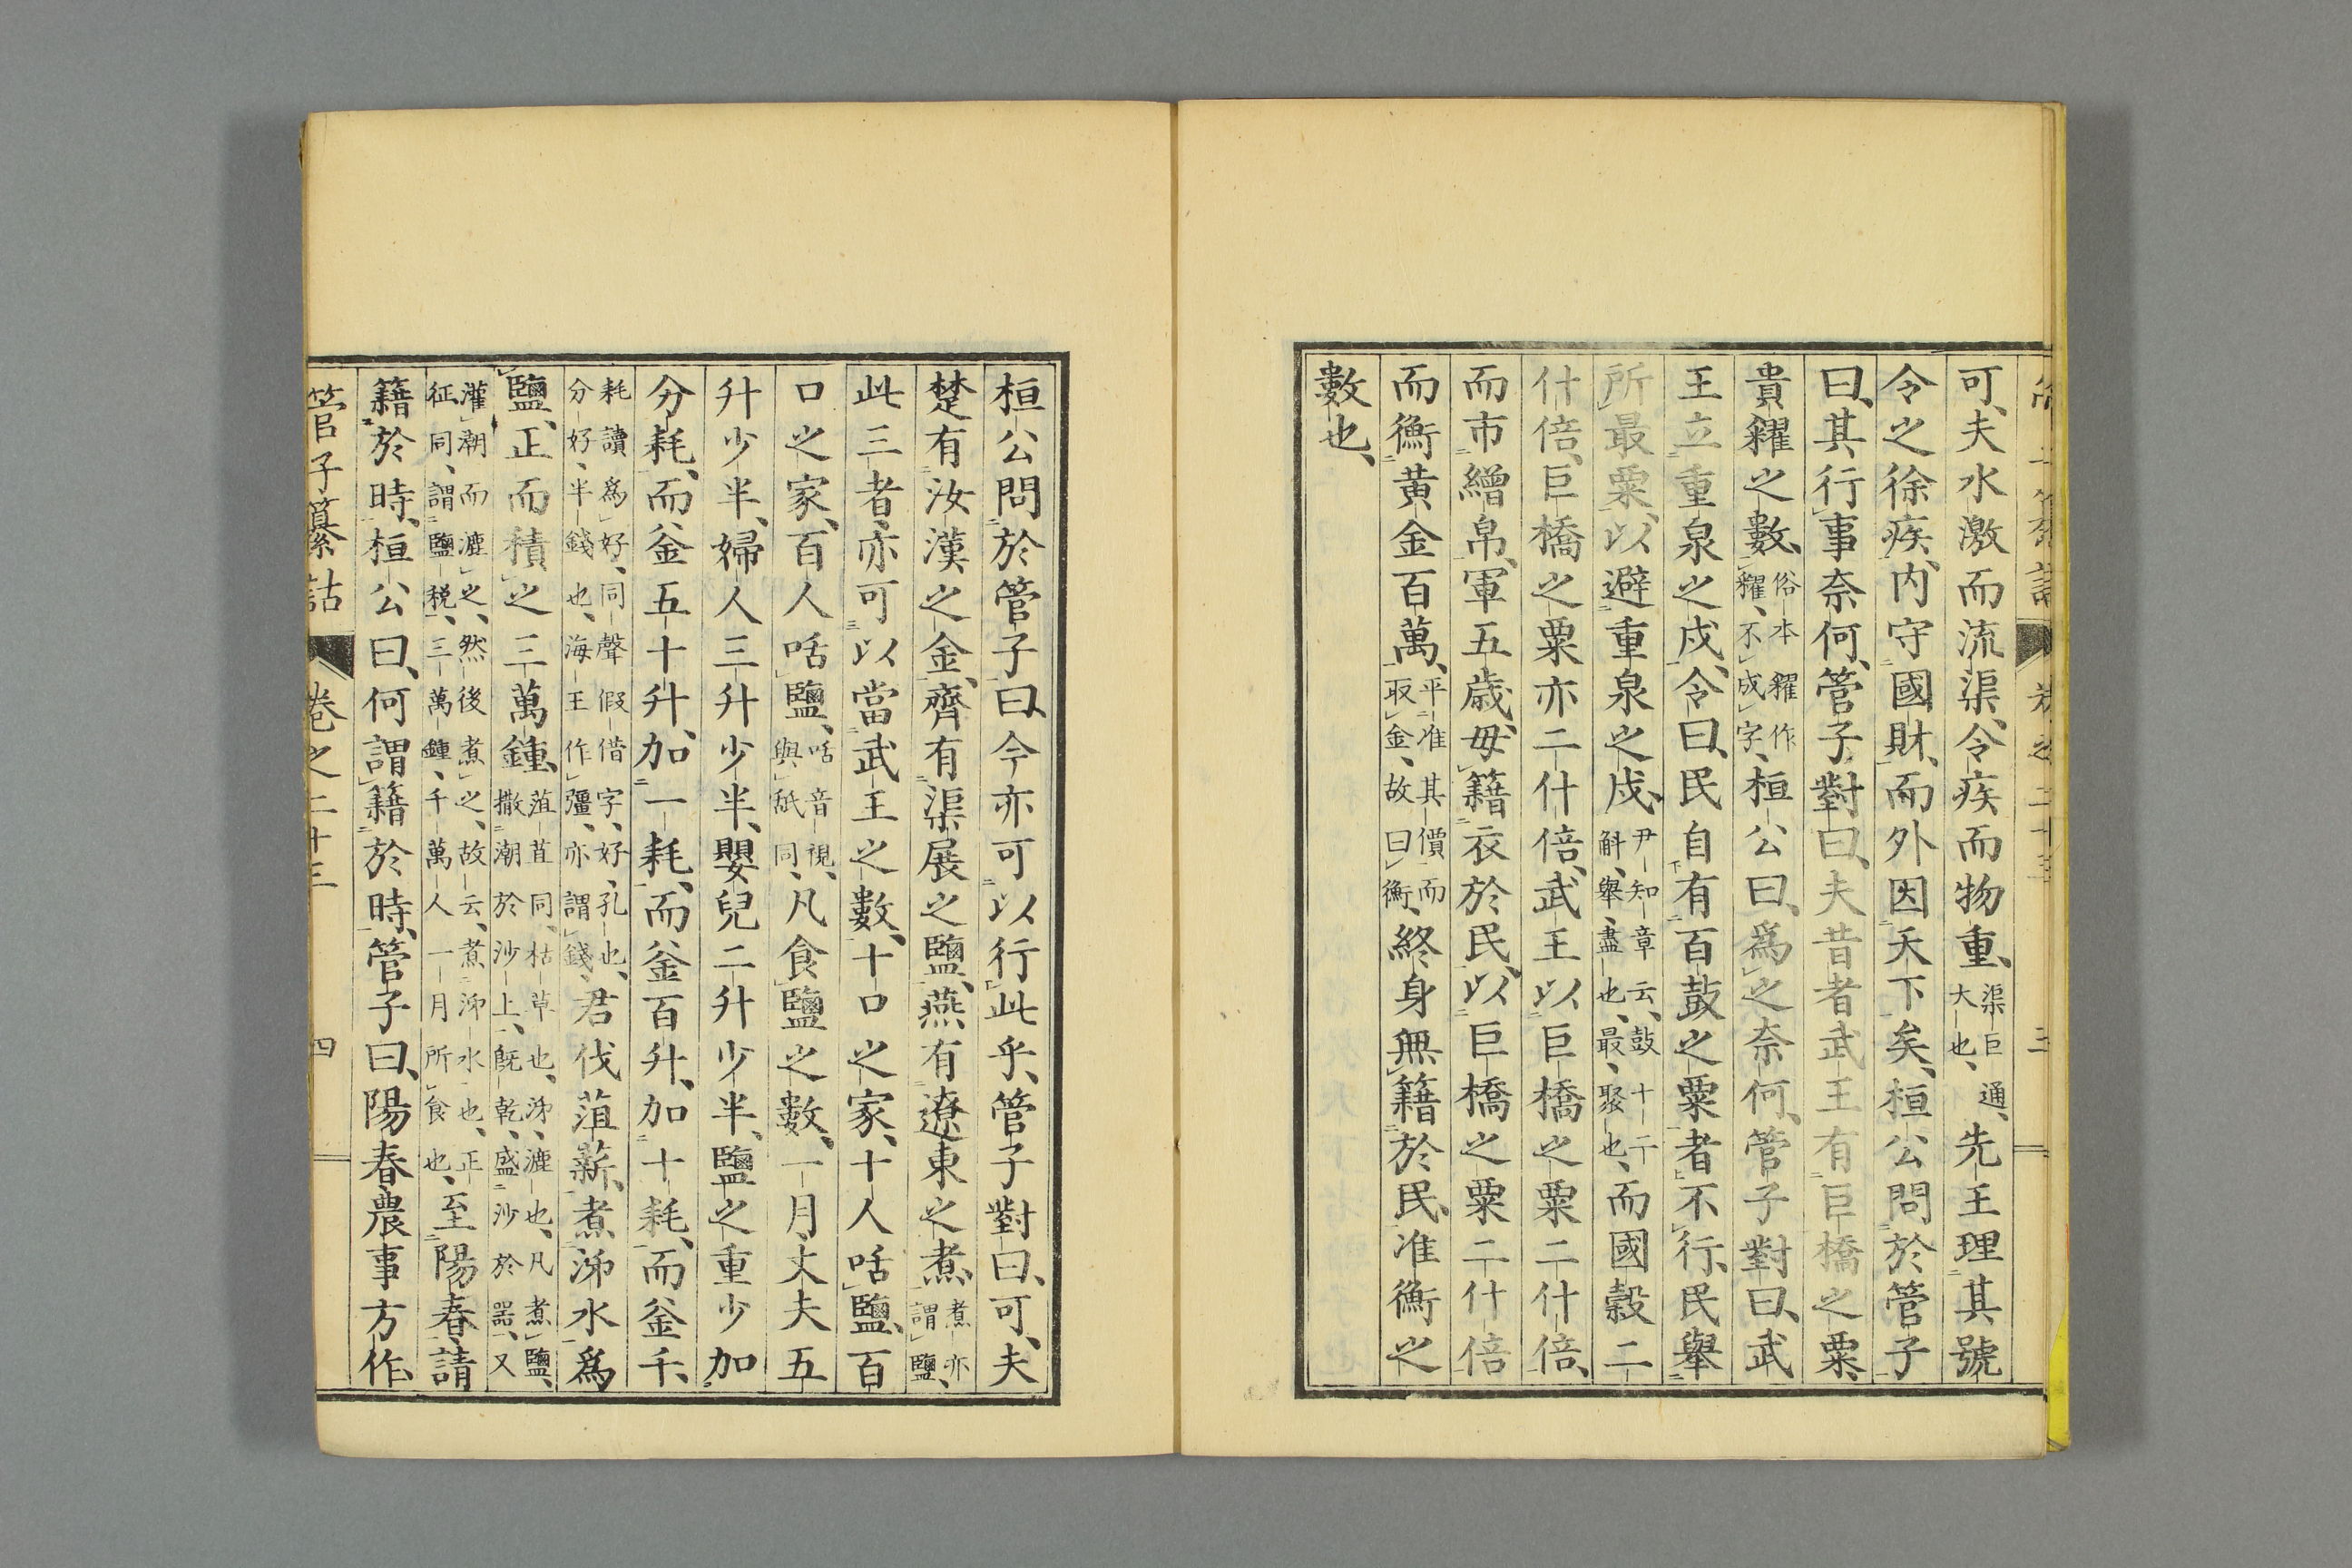 可、夫水激而流渠、令疾而物重、渠巨通、大也、先王理其號
令之徐疾、内守國財、而外因天下矣、桓公問於管子
曰、其行事奈何、管子對曰、夫昔者武王有巨橋之粟、
貴糴之數、俗本糴作糶、不成字、桓公曰、爲之奈何、管子對曰、武
王立重泉之戍、令曰、民自有百鼓之粟者不行、民舉
所最粟、以避重泉之戍、尹知章云、鼓十二斛、舉、盡也、最、聚也、而國穀二
什倍、巨橋之粟亦二什倍、武王以巨橋之粟二什倍、
而市繒帛、軍五歳毋籍衣於民、以巨橋之粟二什倍
而衡黃金百萬、平准其價而取金、故曰衡、終身無籍於民、准衡之
數也、
桓公問於管子曰、今亦可以行此乎、管子對曰、可、夫
楚有汝漢之金、齊有渠展之鹽、燕有遼東之煮、煮亦謂鹽、
此三者、亦可以當武王之數、十口之家、十人咶鹽、百
口之家、百人咶鹽、咶音視、與舐同、凡食鹽之數、一月丈夫五
升少半、婦人三升少半、嬰兒二升少半、鹽之重、升加
分耗、而釜五十升、加一耗、而釜百升、加十耗、而釜千、
耗讀爲好、同聲假借字、好、孔也、分好、半錢也、海王作彊、亦謂錢、君伐菹薪、煮沸水爲
鹽、正而積之三萬鍾、菹苴同、枯草也、沸、漉也、凡煮鹽、撒潮於沙上、既乾、盛沙於器、又
灌潮而漉之、然後煮之、故云、煮沸水也、正征同、謂鹽税、三萬鍾、千萬人一月所食也、至陽春、請
籍於時、桓公曰、何謂籍於時、管子曰、陽春農事方作、
管子纂詁　卷之二十三　四